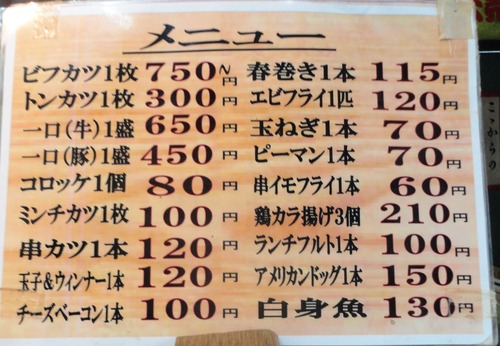 メニュー
ビフカツ1枚 750円~
トンカツ1枚 300円
一口(牛)1盛 650円
一口(豚)1盛 450円
コロッケ1個 80円
ミンチカツ1枚 100円
串カツ1本 120円
玉子&ウィンナー1本 120円
チーズベーコン1本 100円
春巻き1本 115円
エビフライ1匹 120円
玉ねぎ1本 70円
ピーマン1本 70円
串イモフライ1本 60円
鶏カラ揚げ3個 210円
ランチフルト1本 100円
アメリカンドッグ1本 150円
白身魚 130円